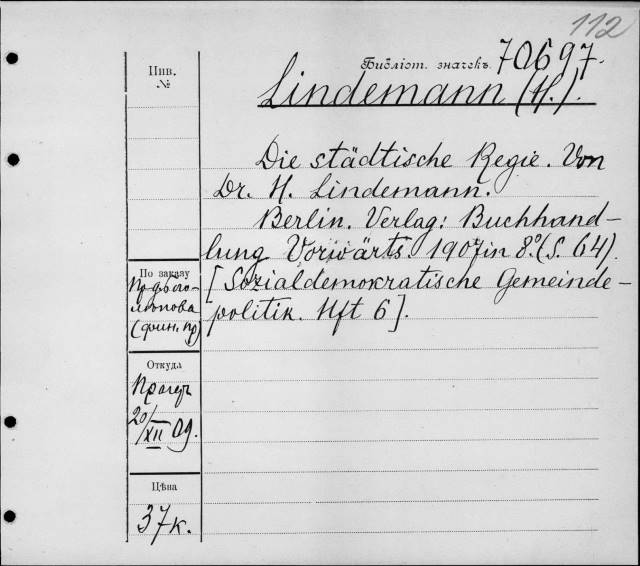 112
Библіот. значекъ 70697.
Lindemann (H.).
Инв.
№
Die städtische Regie. Von
Dr. H. Lindemann.
Berlin. Verlag: Buchhand-
lung Vorwärts. 1907 in 8º. (S. 64).
[Sozialdemokratische Gemeinde-
politik. Hft 6].
По заказу
(фин. пр)
Откуда
Прагеръ
20/XII 09.
Цѣна
37 к.